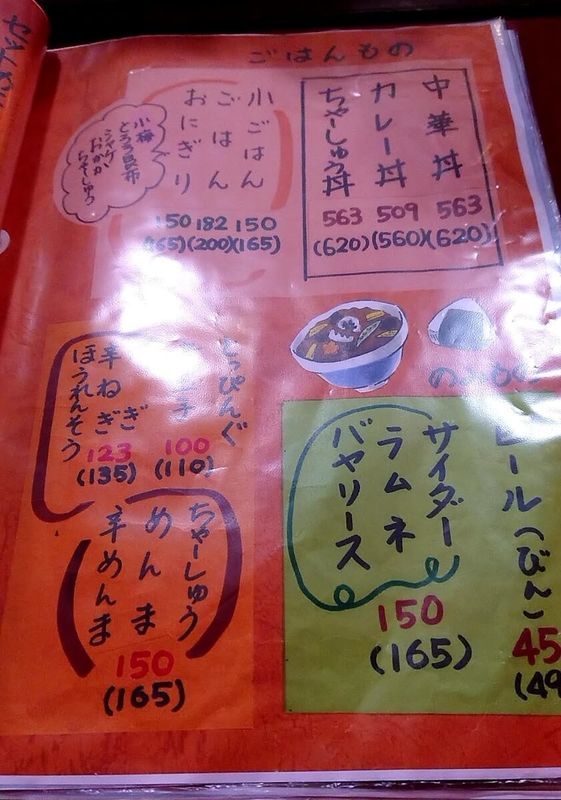 ごはんもの
中華丼
563
(620)
カレー丼
509
(560)
ちゃーしゅう丼
563
(620)
小ごはん
150
(165)
ごはん
182
(200)
おにぎり
150
小梅
とろろ昆布
シャケ
おかか
ちゃーしゅう
とっぴんぐ
100
(110)
ねぎ
辛ねぎ
ほうれんそう
123
(135)
ちゃーしゅう
めんま
辛めんま
150
(165)
のみもの
ビール(びん)
サイダー
ラムネ
バヤリース
150
(165)